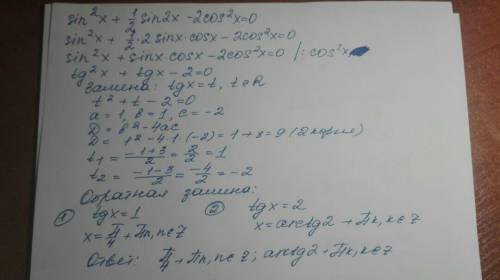 sin²x + 1/2 sin2x - 2cos²x = 0
sin²x + 1/2 · 2 sinx · cosx - 2cos²x = 0
sin²x + sinx · cosx - 2cos²x = 0 /: cos²x
tg²x + tgx - 2 = 0
Замена: tgx = t, t ∈ R
t² + t - 2 = 0
a = 1, b = 1, c = -2
D = b² - 4ac
D = 1² - 4 · 1 · (-2) = 1 + 8 = 9 (2 корня)
t₁ = (-1+3)/2 = 2/2 = 1
t₂ = (-1-3)/2 = -4/2 = -2
Обратная замена:
① tgx = 1 ② tgx = 2
x = π/4 + πn, n ∈ Z x = arctg2 + πk, k ∈ Z
Ответ: π/4 + πn, n ∈ Z; arctg2 + πk, k ∈ Z